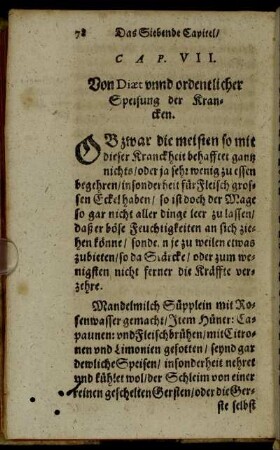 78 Das Siebende Capitel/
CAP. VII.
Von Diæt vnnd ordentlicher
Speisung der Kran-
cken.
OB zwar die meisten so mit
dieser Kranckheit behafftet gantz
nichts/oder ja sehr wenig zu essen
begehren/insonderheit für Fleisch gros-
sen Eckel haben/ so ist doch der Mage
so gar nicht aller dinge leer zu lassen/
daß er böse Feuchtigkeiten an sich zie-
hen könne/ sonde.n je zu weilen etwas
zubieten/ so da Stärcke/ oder zum we-
nigsten nicht ferner die Kräffte ver-
zehre.
Mandelmilch Süpplein mit Ro-
senwasser gemacht/ Item Hüner: Ca-
paunen: vnd Fleischbrühen/ mit Citro-
nen vnd Limonien gesotten/ seynd gar
dewliche Speisen/ insonderheit nehret
vnd kühlet wol/ der Schleim von einer
reinen gescheltenGersten/oder die Ger-
ste selbst